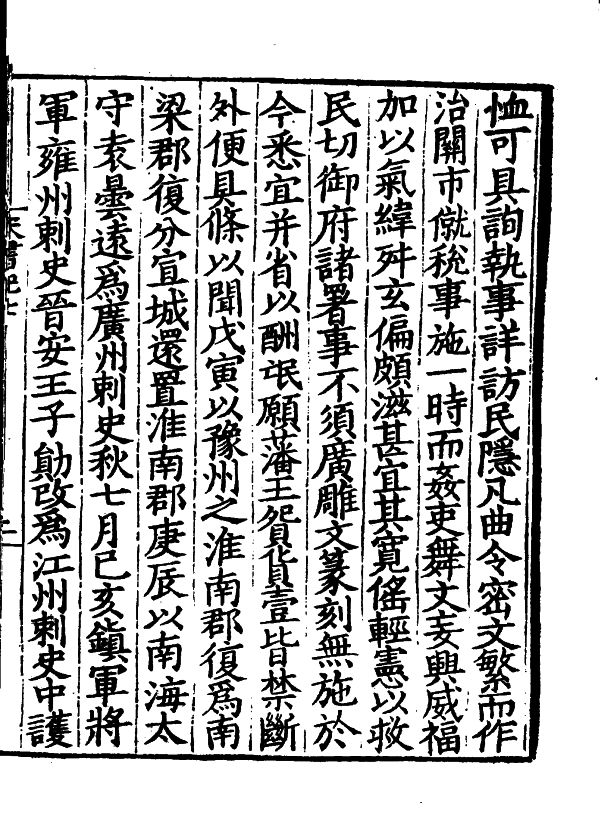 恤可具詢執事詳訪民隱凡曲令密文繁而作
治關市僦稅事施一時而姦吏舞文妄興威福
加以氣緯舛玄偏頗滋甚宜其寛傜輕憲以救
民切御府諸署事不須廣雕文篆刻無施於
今悉宜并省以酬氓願藩王貿貨壹皆禁斷
外便具條以聞戊寅以豫州之淮南郡復爲南
梁郡復分宣城還置淮南郡庚辰以南海太
守袁曇遠爲廣州刺史秋七月己亥鎭軍將
軍雍州刺史晉安王子勛改爲江州刺史中護
宋書紀七